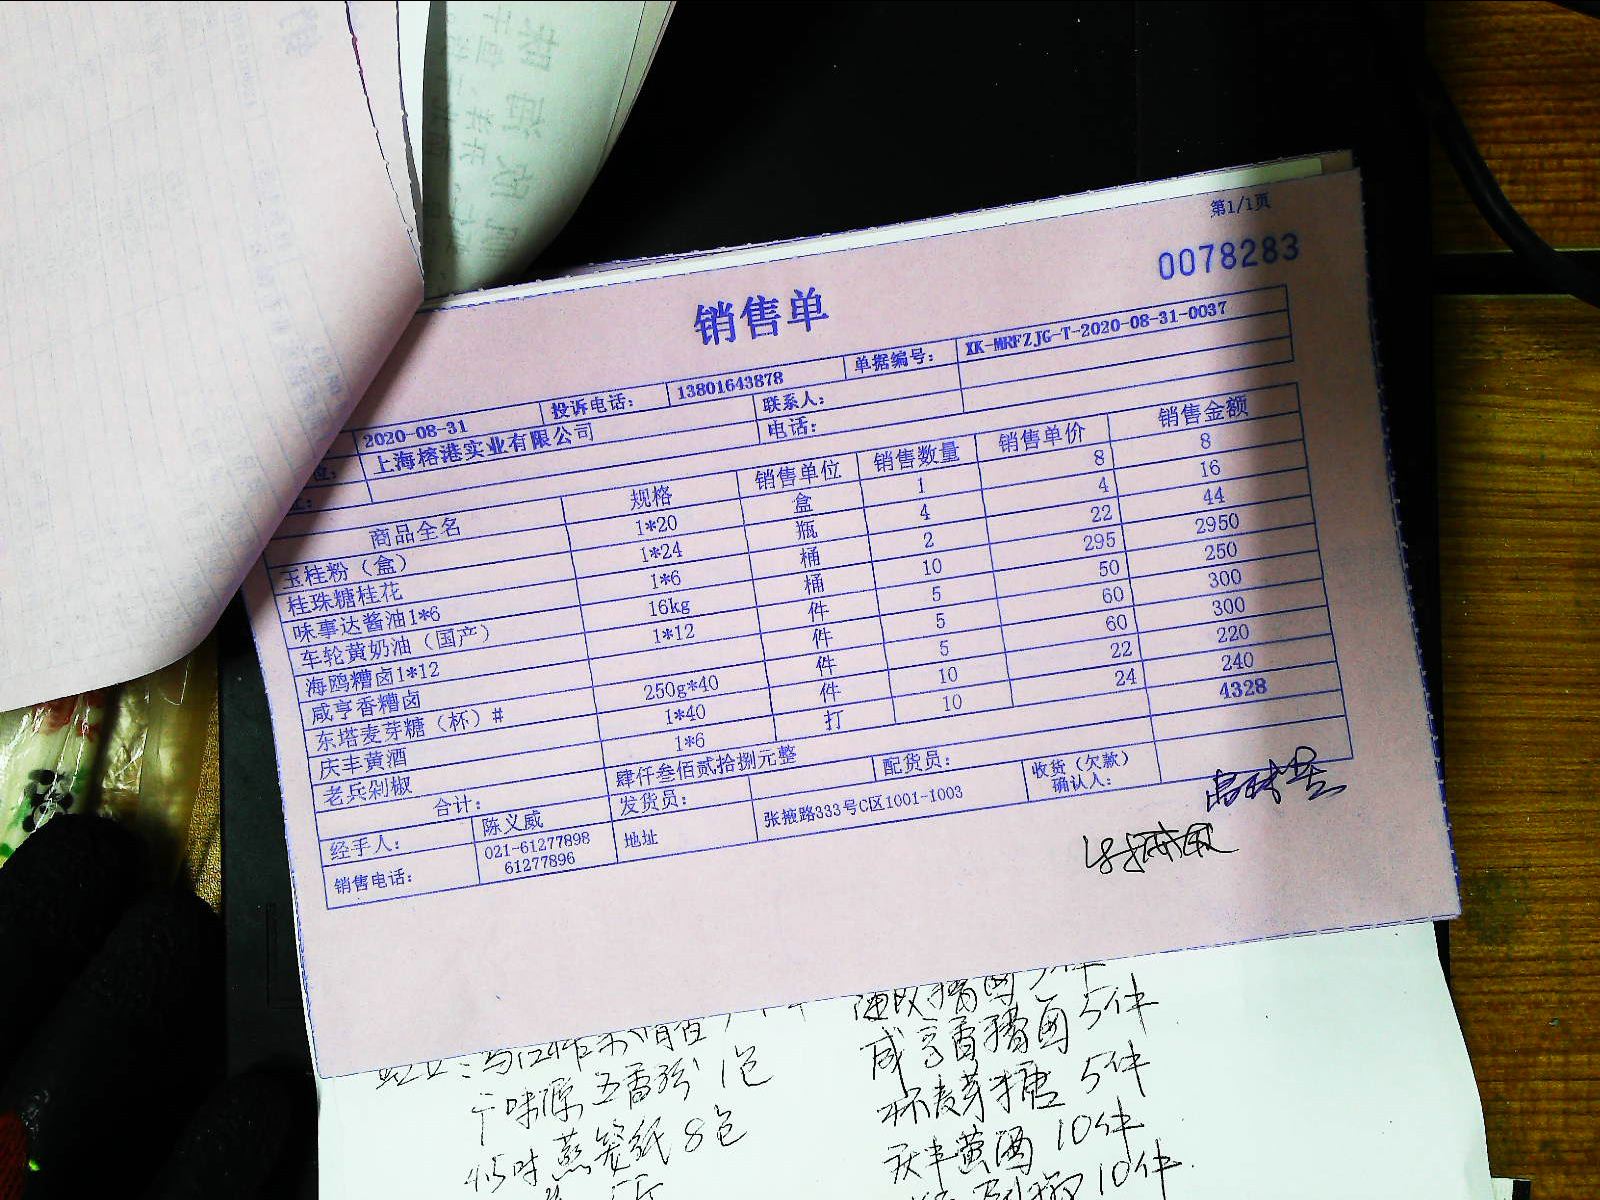 第1/1页
0078283
销售单
2020-08-31 投诉电话: 13801643878 单据编号: XK-MRFZJG-T-2020-08-31-0037
位: 上海榕港实业有限公司 联系人:
电话:
商品全名 规格 销售单位 销售数量 销售单价 销售金额
玉桂粉（盒） 1*20 盒 1 8 8
桂珠糖桂花 1*24 瓶 4 4 16
味事达酱油1*6 1*6 桶 2 22 44
车轮黄奶油（国产） 16kg 桶 10 295 2950
海鸥糟卤1*12 1*12 件 5 50 250
咸亨香糟卤 件 5 60 300
东塔麦芽糖（杯）# 250g*40 件 5 60 300
庆丰黄酒 1*40 件 10 22 220
老兵剁椒 1*6 打 10 24 240
合计: 肆仟叁佰贰拾捌元整 4328
经手人: 陈义威 发货员: 配货员: 收货（欠款）确认人:
销售电话: 021-61277898 61277896 地址 张掖路333号C区1001-1003
咸亨香糟卤 5件
味源五香粉 1包
杯麦芽糖 5件
蒸笼纸 8包
庆丰黄酒 10件
10件